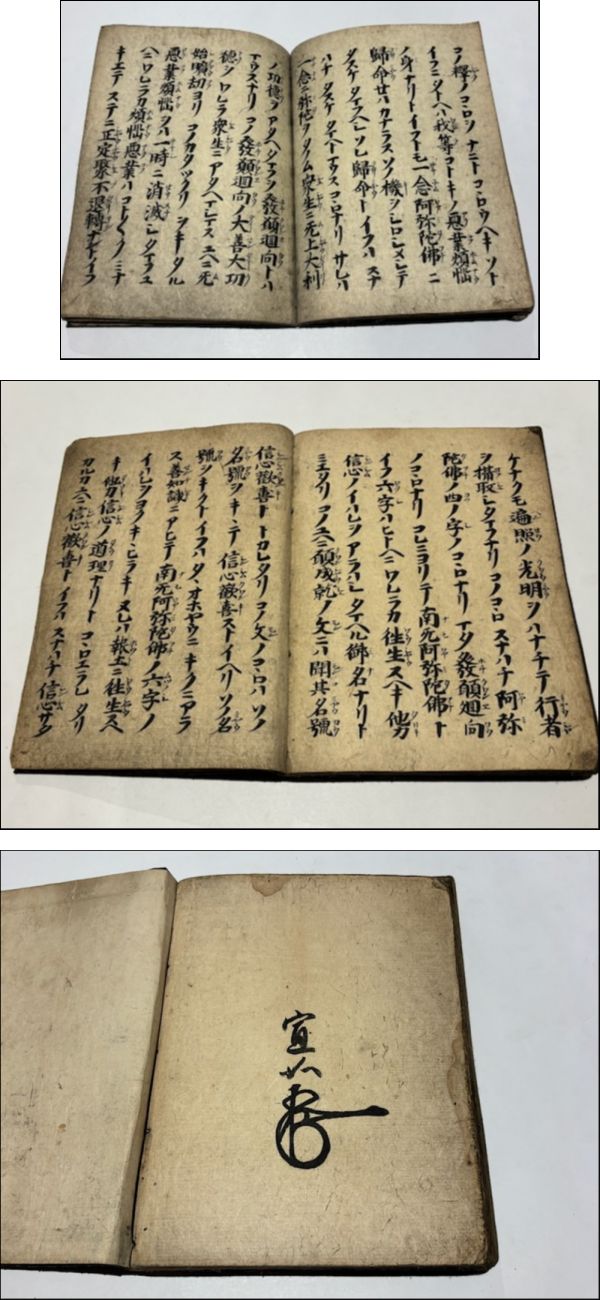 コノ釋ノコヽロヲナニトコヽロウヘキソト
イフニタトヘハ我等コトキノ悪業煩悩
ノ身ナリトイフトモ一念阿弥陀佛ニ
歸命セハカナラスソノ機ヲシロシメシテ
タスケタマフヘシソレ歸命トイフハスナ
ハチタスケタマヘトマウスコヽロナリサレハ
一念ニ弥陀ヲタノム衆生ニ无上大利
ノ功徳ヲアタヘタマフヲ發願廻向トハ
マウスナリコノ發願廻向ノ大善大功
徳ヲワレラ衆生ニアタヘマシマスユヘニ无
始曠劫ヨリコノカタツクリヲキタル
悪業煩悩ヲハ一時ニ消滅シタマフユ
ヘニワレラカ煩悩悪業ハコトヽヽクミナ
キエテステニ正定聚不退轉ナントイフ
ケナクモ遍照ノ光明ヲハナチテ行者
ヲ攝取シタマフナリコノコヽロスナハチ阿弥
陀佛ノ四ノ字ノコヽロナリマタ發願廻向
ノコヽロナリコレニヨリテ南无阿弥陀佛ト
イフ六字ハヒトヘニワレラカ往生スヘキ他力
信心ノイハレヲアラハシタマヘル御名ナリト
ミエタリコノユヘニ願成就ノ文ニハ聞其名號
信心歡喜トトカレタリコノ文ノコヽロハソノ
名號ヲキヽテ信心歡喜ストイヘリソノ名
號ヲキクトイフハタヽオホヤウニキクニアラ
ス善知識ニアヒテ南无阿弥陀佛ノ六字ノ
イハレヲヨクキヽヒラキヌレハ報土ニ往生スヘ
キ他力信心ノ道理ナリトコヽロエラレタリ
カルカユヘニ信心歡喜トイフハスナハチ信心サタ
宣如